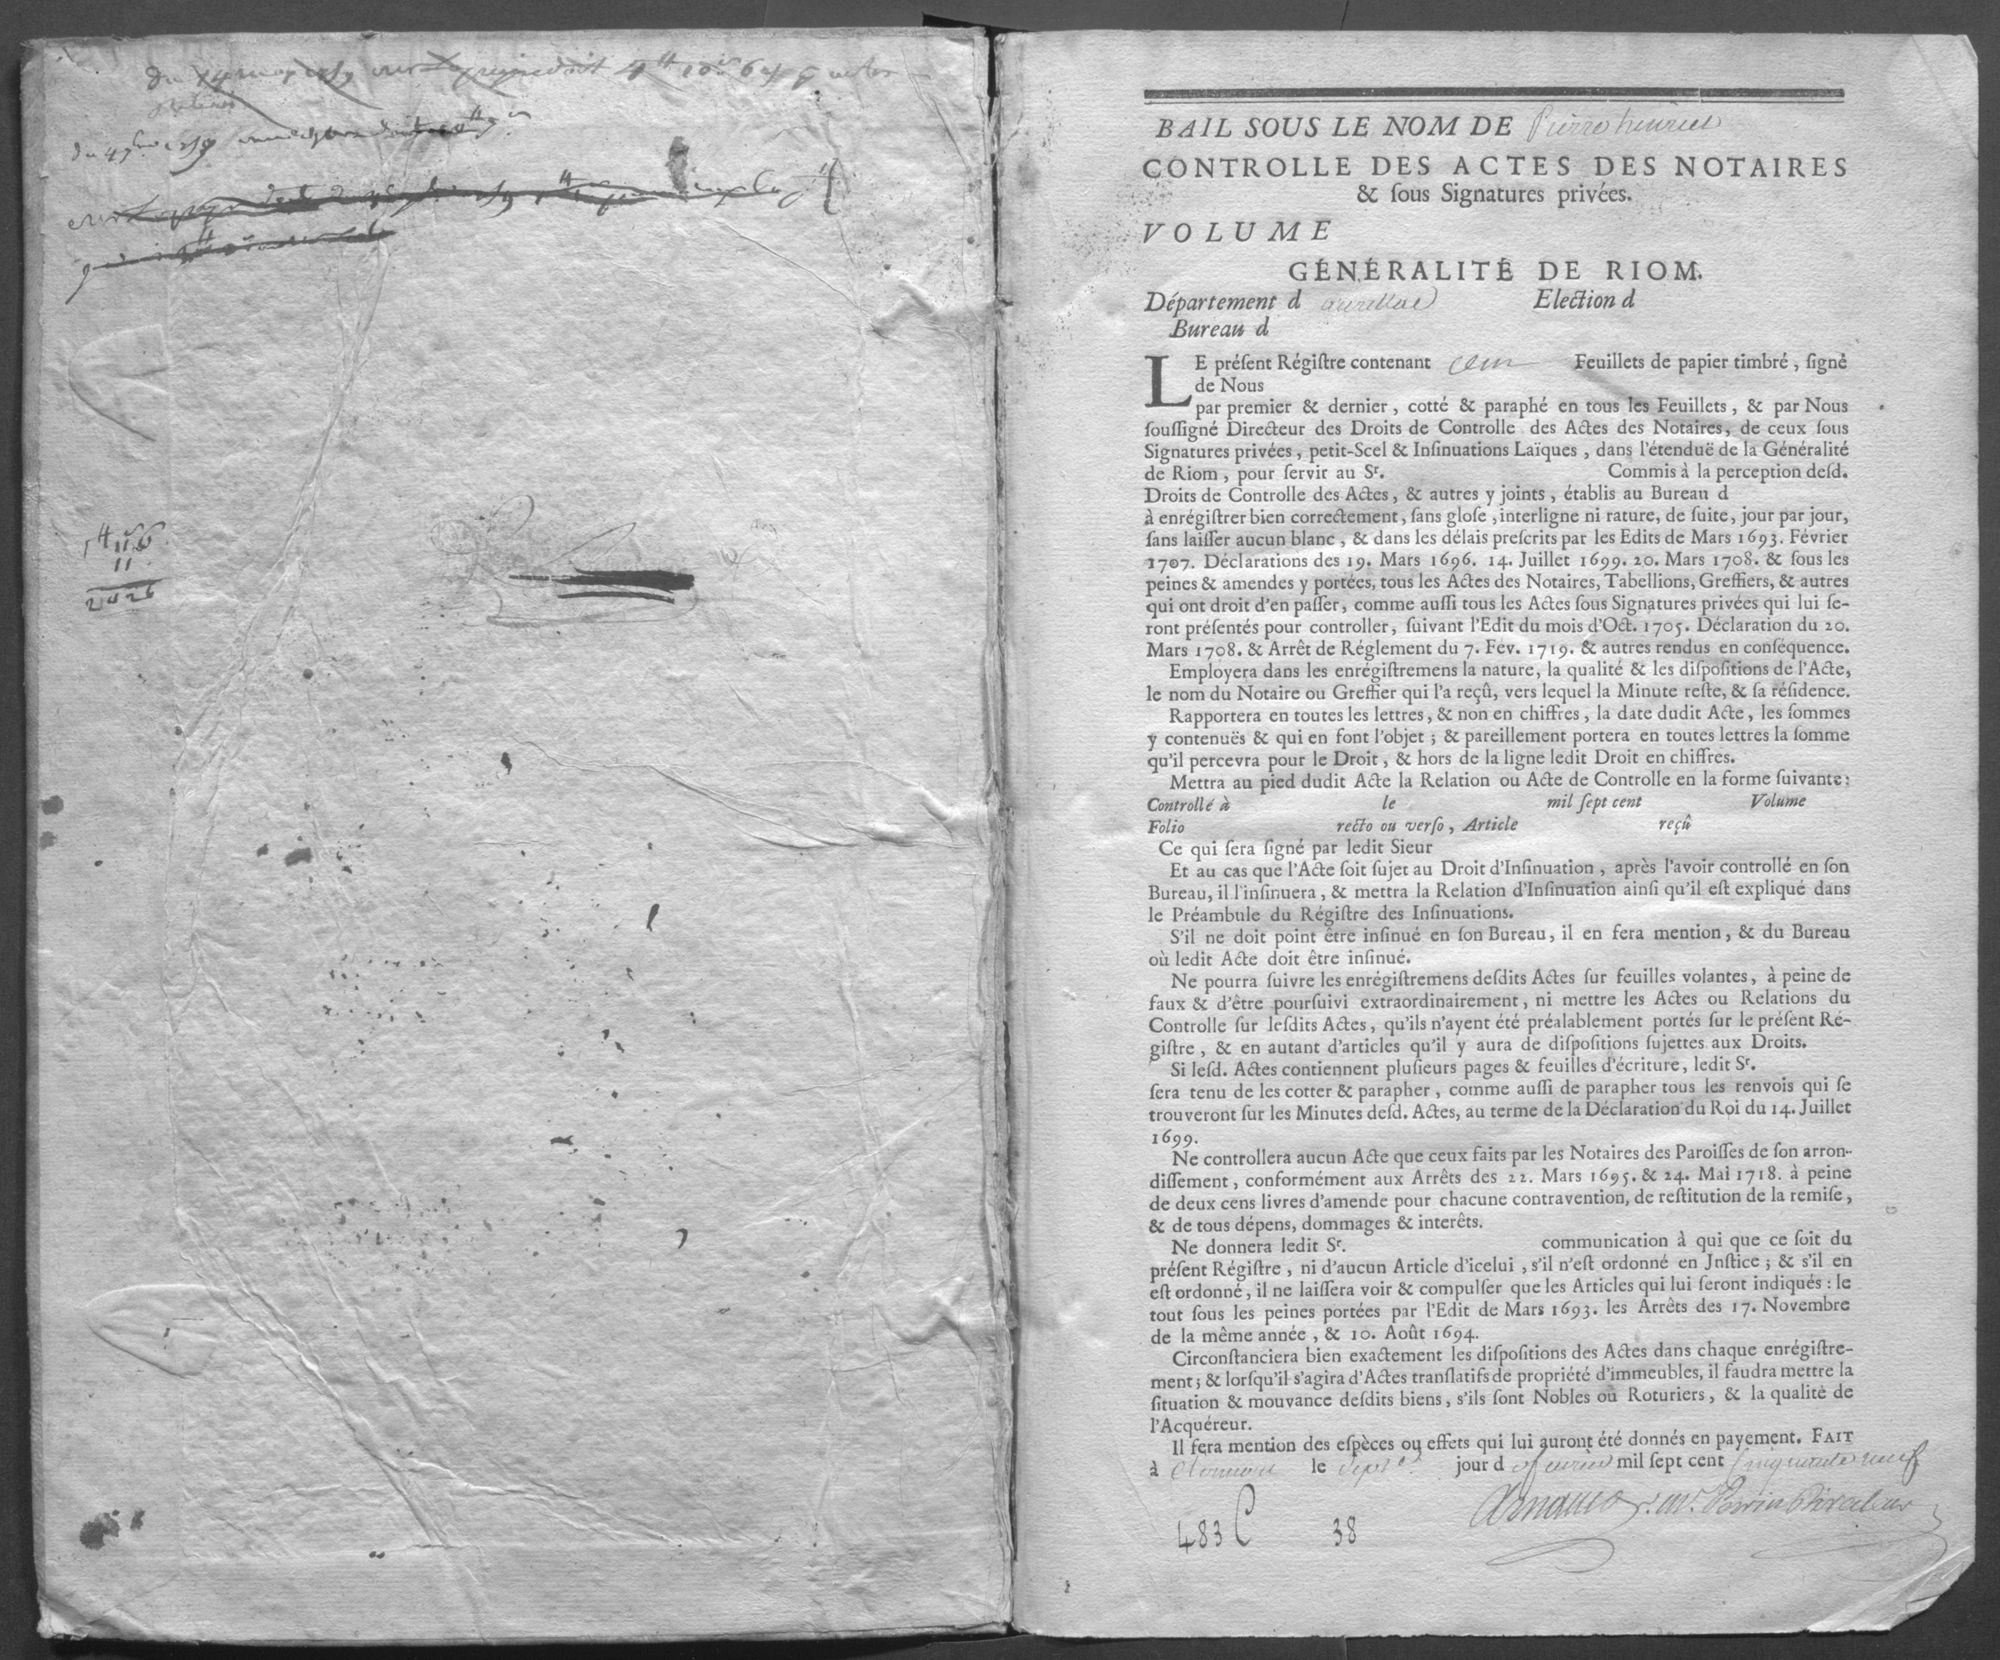 BAIL SOUS LE NOM DE Pierre henriet
CONTROLLE DES ACTES DES NOTAIRES
& ſous Signatures privées.
VOLUME
GÉNÉRALITÉ DE RIOM.
Département d aurillac Election d
Bureau d
LE préſent Régiſtre contenant cent Feuillets de papier timbré, ſigné
de Nous
par premier & dernier, cotté & paraphé en tous les Feuillets, & par Nous
ſouſſigné Directeur des Droits de Controlle des Actes des Notaires, de ceux ſous
Signatures privées, petit-Scel & Inſinuations Laïques, dans l'étenduë de la Généralité
de Riom, pour ſervir au Sr. Commis à la perception deſd.
Droits de Controlle des Actes, & autres y joints, établis au Bureau d
à enrégiſtrer bien correctement, ſans gloſe, interligne ni rature, de ſuite, jour par jour,
ſans laiſſer aucun blanc, & dans les délais preſcrits par les Edits de Mars 1693. Février
1707. Déclarations des 19. Mars 1696. 14. Juillet 1699. 20. Mars 1708. & ſous les
peines & amendes y portées, tous les Actes des Notaires, Tabellions, Greffiers, & autres
qui ont droit d'en paſſer, comme auſſi tous les Actes ſous Signatures privées qui lui ſe-
ront préſentés pour controller, ſuivant l'Edit du mois d'Oct. 1705. Déclaration du 20.
Mars 1708. & Arrêt de Réglement du 7. Fév. 1719. & autres rendus en conſéquence.
Employera dans les enrégiſtremens la nature, la qualité & les diſpoſitions de l'Acte,
le nom du Notaire ou Greffier qui l'a reçû, vers lequel la Minute reſte, & ſa réſidence.
Rapportera en toutes les lettres, & non en chiffres, la date dudit Acte, les ſommes
y contenuës & qui en font l'objet; & pareillement portera en toutes lettres la ſomme
qu'il percevra pour le Droit, & hors de la ligne ledit Droit en chiffres.
Mettra au pied dudit Acte la Relation ou Acte de Controlle en la forme ſuivante:
Controllé à le mil ſept cent Volume
Folio recto ou verſo, Article reçû
Ce qui ſera ſigné par ledit Sieur
Et au cas que l'Acte ſoit ſujet au Droit d'Inſinuation, après l'avoir controllé en ſon
Bureau, il l'inſinuera, & mettra la Relation d'Inſinuation ainſi qu'il eſt expliqué dans
le Préambule du Régiſtre des Inſinuations.
S'il ne doit point être inſinué en ſon Bureau, il en fera mention, & du Bureau
où ledit Acte doit être inſinué.
Ne pourra ſuivre les enrégiſtremens deſdits Actes ſur feuilles volantes, à peine de
faux & d'être pourſuivi extraordinairement, ni mettre les Actes ou Relations du
Controlle ſur leſdits Actes, qu'ils n'ayent été préalablement portés ſur le préſent Ré-
giſtre, & en autant d'articles qu'il y aura de diſpoſitions ſujettes aux Droits.
Si leſd. Actes contiennent pluſieurs pages & feuilles d'écriture, ledit Sr.
ſera tenu de les cotter & parapher, comme auſſi de parapher tous les renvois qui ſe
trouveront ſur les Minutes deſd. Actes, au terme de la Déclaration du Roi du 14. Juillet
1699.
Ne controllera aucun Acte que ceux faits par les Notaires des Paroiſſes de ſon arron-
diſſement, conformément aux Arrêts des 22. Mars 1695. & 24. Mai 1718. à peine
de deux cens livres d'amende pour chacune contravention, de reſtitution de la remiſe,
& de tous dépens, dommages & interêts.
Ne donnera ledit Sr. communication à qui que ce ſoit du
préſent Régiſtre, ni d'aucun Article d'icelui, s'il n'eſt ordonné en Jnſtice; & s'il en
eſt ordonné, il ne laiſſera voir & compulſer que les Articles qui lui ſeront indiqués: le
tout ſous les peines portées par l'Edit de Mars 1693. les Arrêts des 17. Novembre
de la même année, & 10. Août 1694.
Circonſtanciera bien exactement les diſpoſitions des Actes dans chaque enrégiſtre-
ment; & lorſqu'il s'agira d'Actes tranſlatifs de propriété d'immeubles, il faudra mettre la
ſituation & mouvance deſdits biens, s'ils ſont Nobles ou Roturiers, & la qualité de
l'Acquéreur.
Il fera mention des eſpèces ou effets qui lui auront été donnés en payement. FAIT
à Clermont le sept jour d fevrier mil ſept cent cinquante neuf
483 C 38